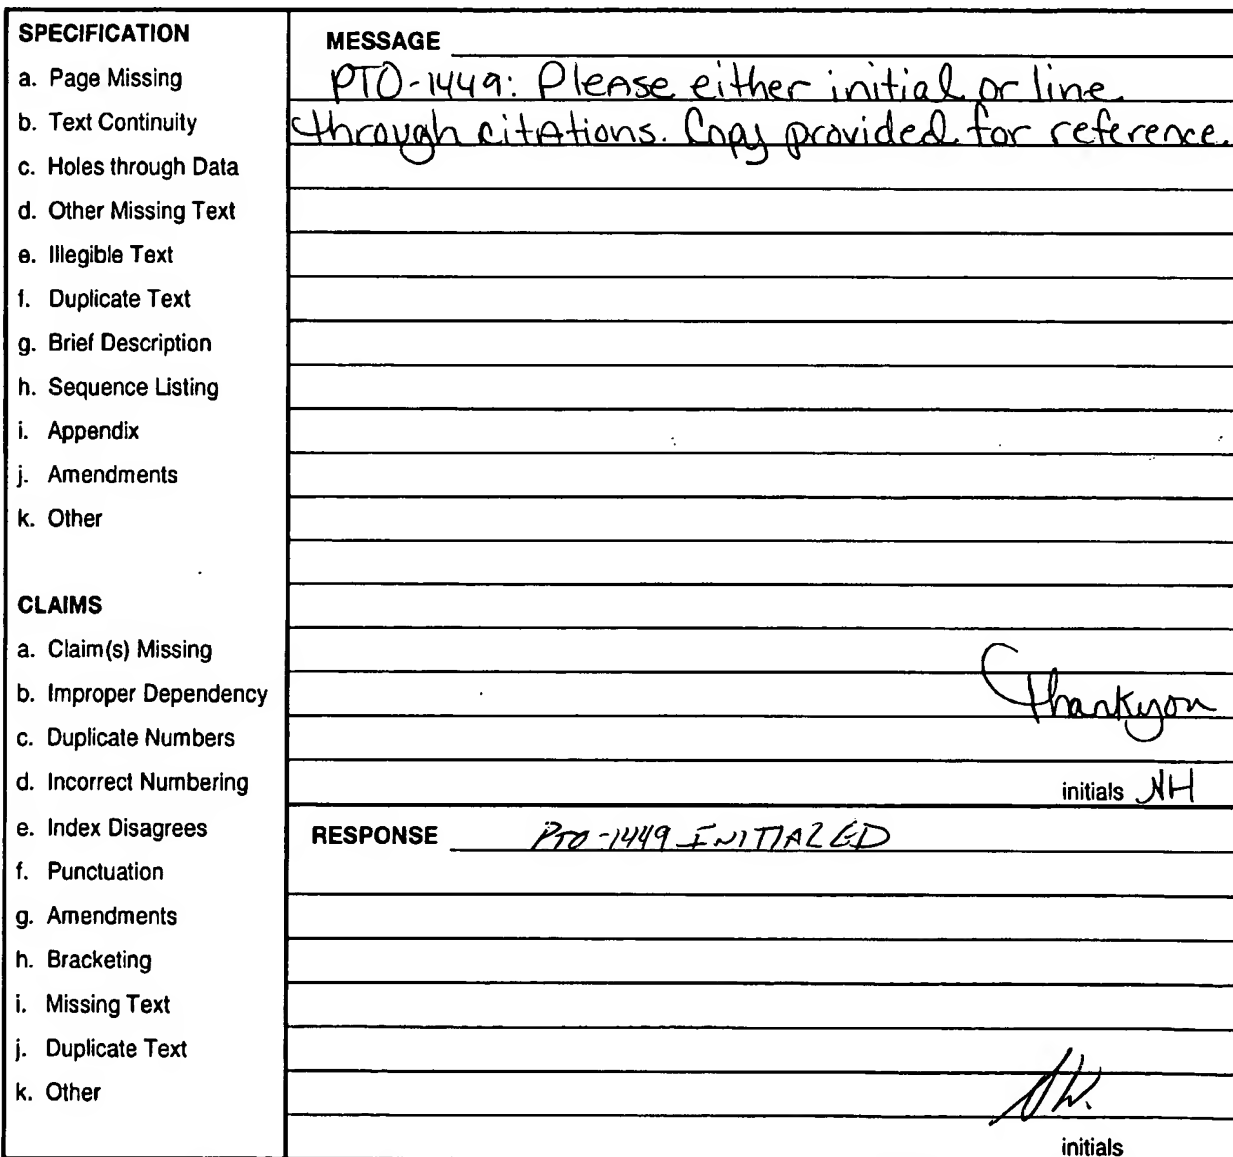 SPECIFICATION
a. Page Missing
b. Text Continuity
c. Holes through Data
d. Other Missing Text
e. Illegible Text
f. Duplicate Text
g. Brief Description
h. Sequence Listing
i. Appendix
j. Amendments
k. Other
CLAIMS
a. Claim(s) Missing
b. Improper Dependency
c. Duplicate Numbers
d. Incorrect Numbering
e. Index Disagrees
f. Punctuation
g. Amendments
h. Bracketing
i. Missing Text
j. Duplicate Text
k. Other
MESSAGE
PTO-1449: Please either initial or line
through citations. Copy provided for reference.
Thank you
initials NH
RESPONSE PTO-1449 INITIALED
initials